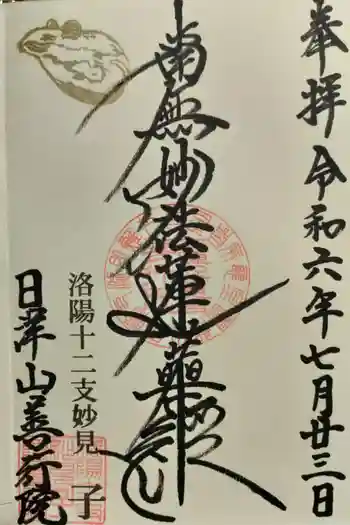 奉拝 令和六年七月廿三日
南無妙法蓮華経
洛陽十二支妙見 子
日華山善行院